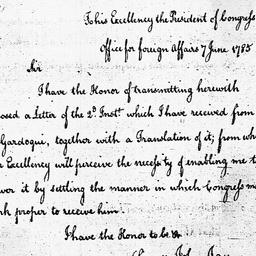 To his Excellency the President of Congress
Office for foreign Affairs 7 June 1785
Sir
I have the Honor of transmitting herewith
osed a Letter of the 2d. Inst. which I have received from
Gardoqui, together with a Translation of it; from wh
Excellency will perceive the necessity of enabling me t
wer it by settling the manner in which Congress m
nk proper to receive him.
I have the Honor to be &
John Jay